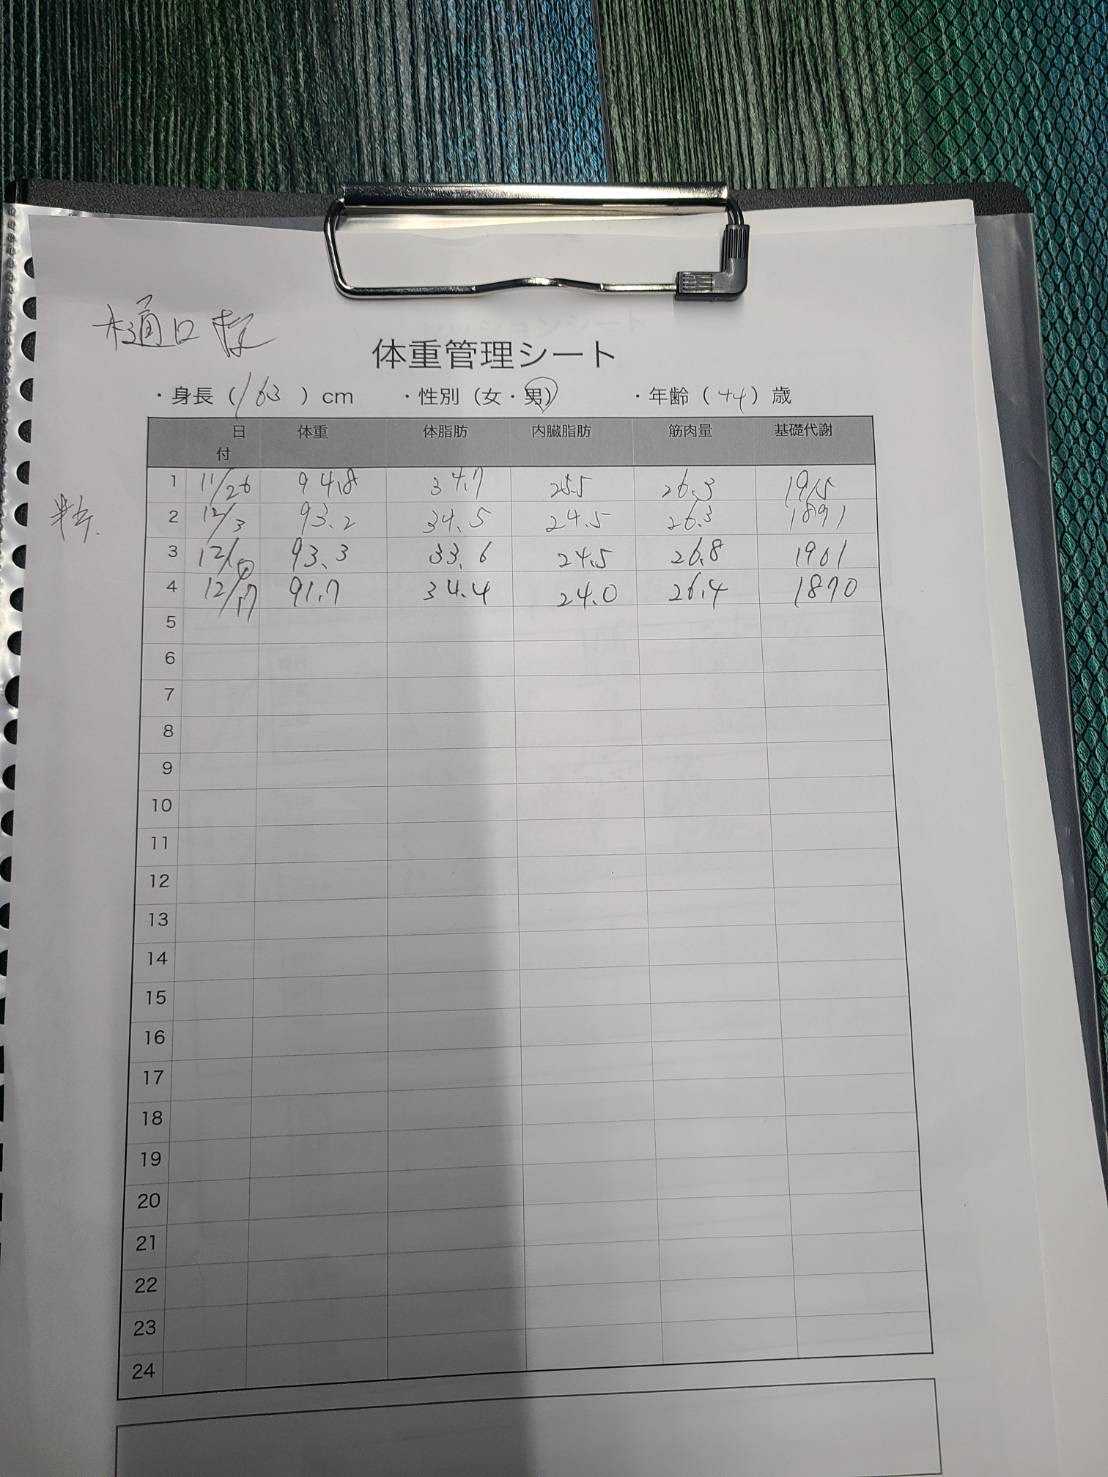 樋口
体重管理シート
・身長（163）cm ・性別（女・男） ・年齢（44）歳
日付 体重 体脂肪 内臓脂肪 筋肉量 基礎代謝
1 11/26 94.8 34.7 25.5 26.3 1915
2 12/3 93.2 34.5 24.5 26.3 1891
3 12/10 93.3 33.6 24.5 26.8 1901
4 12/17 91.7 34.4 24.0 26.4 1870
5
6
7
8
9
10
11
12
13
14
15
16
17
18
19
20
21
22
23
24